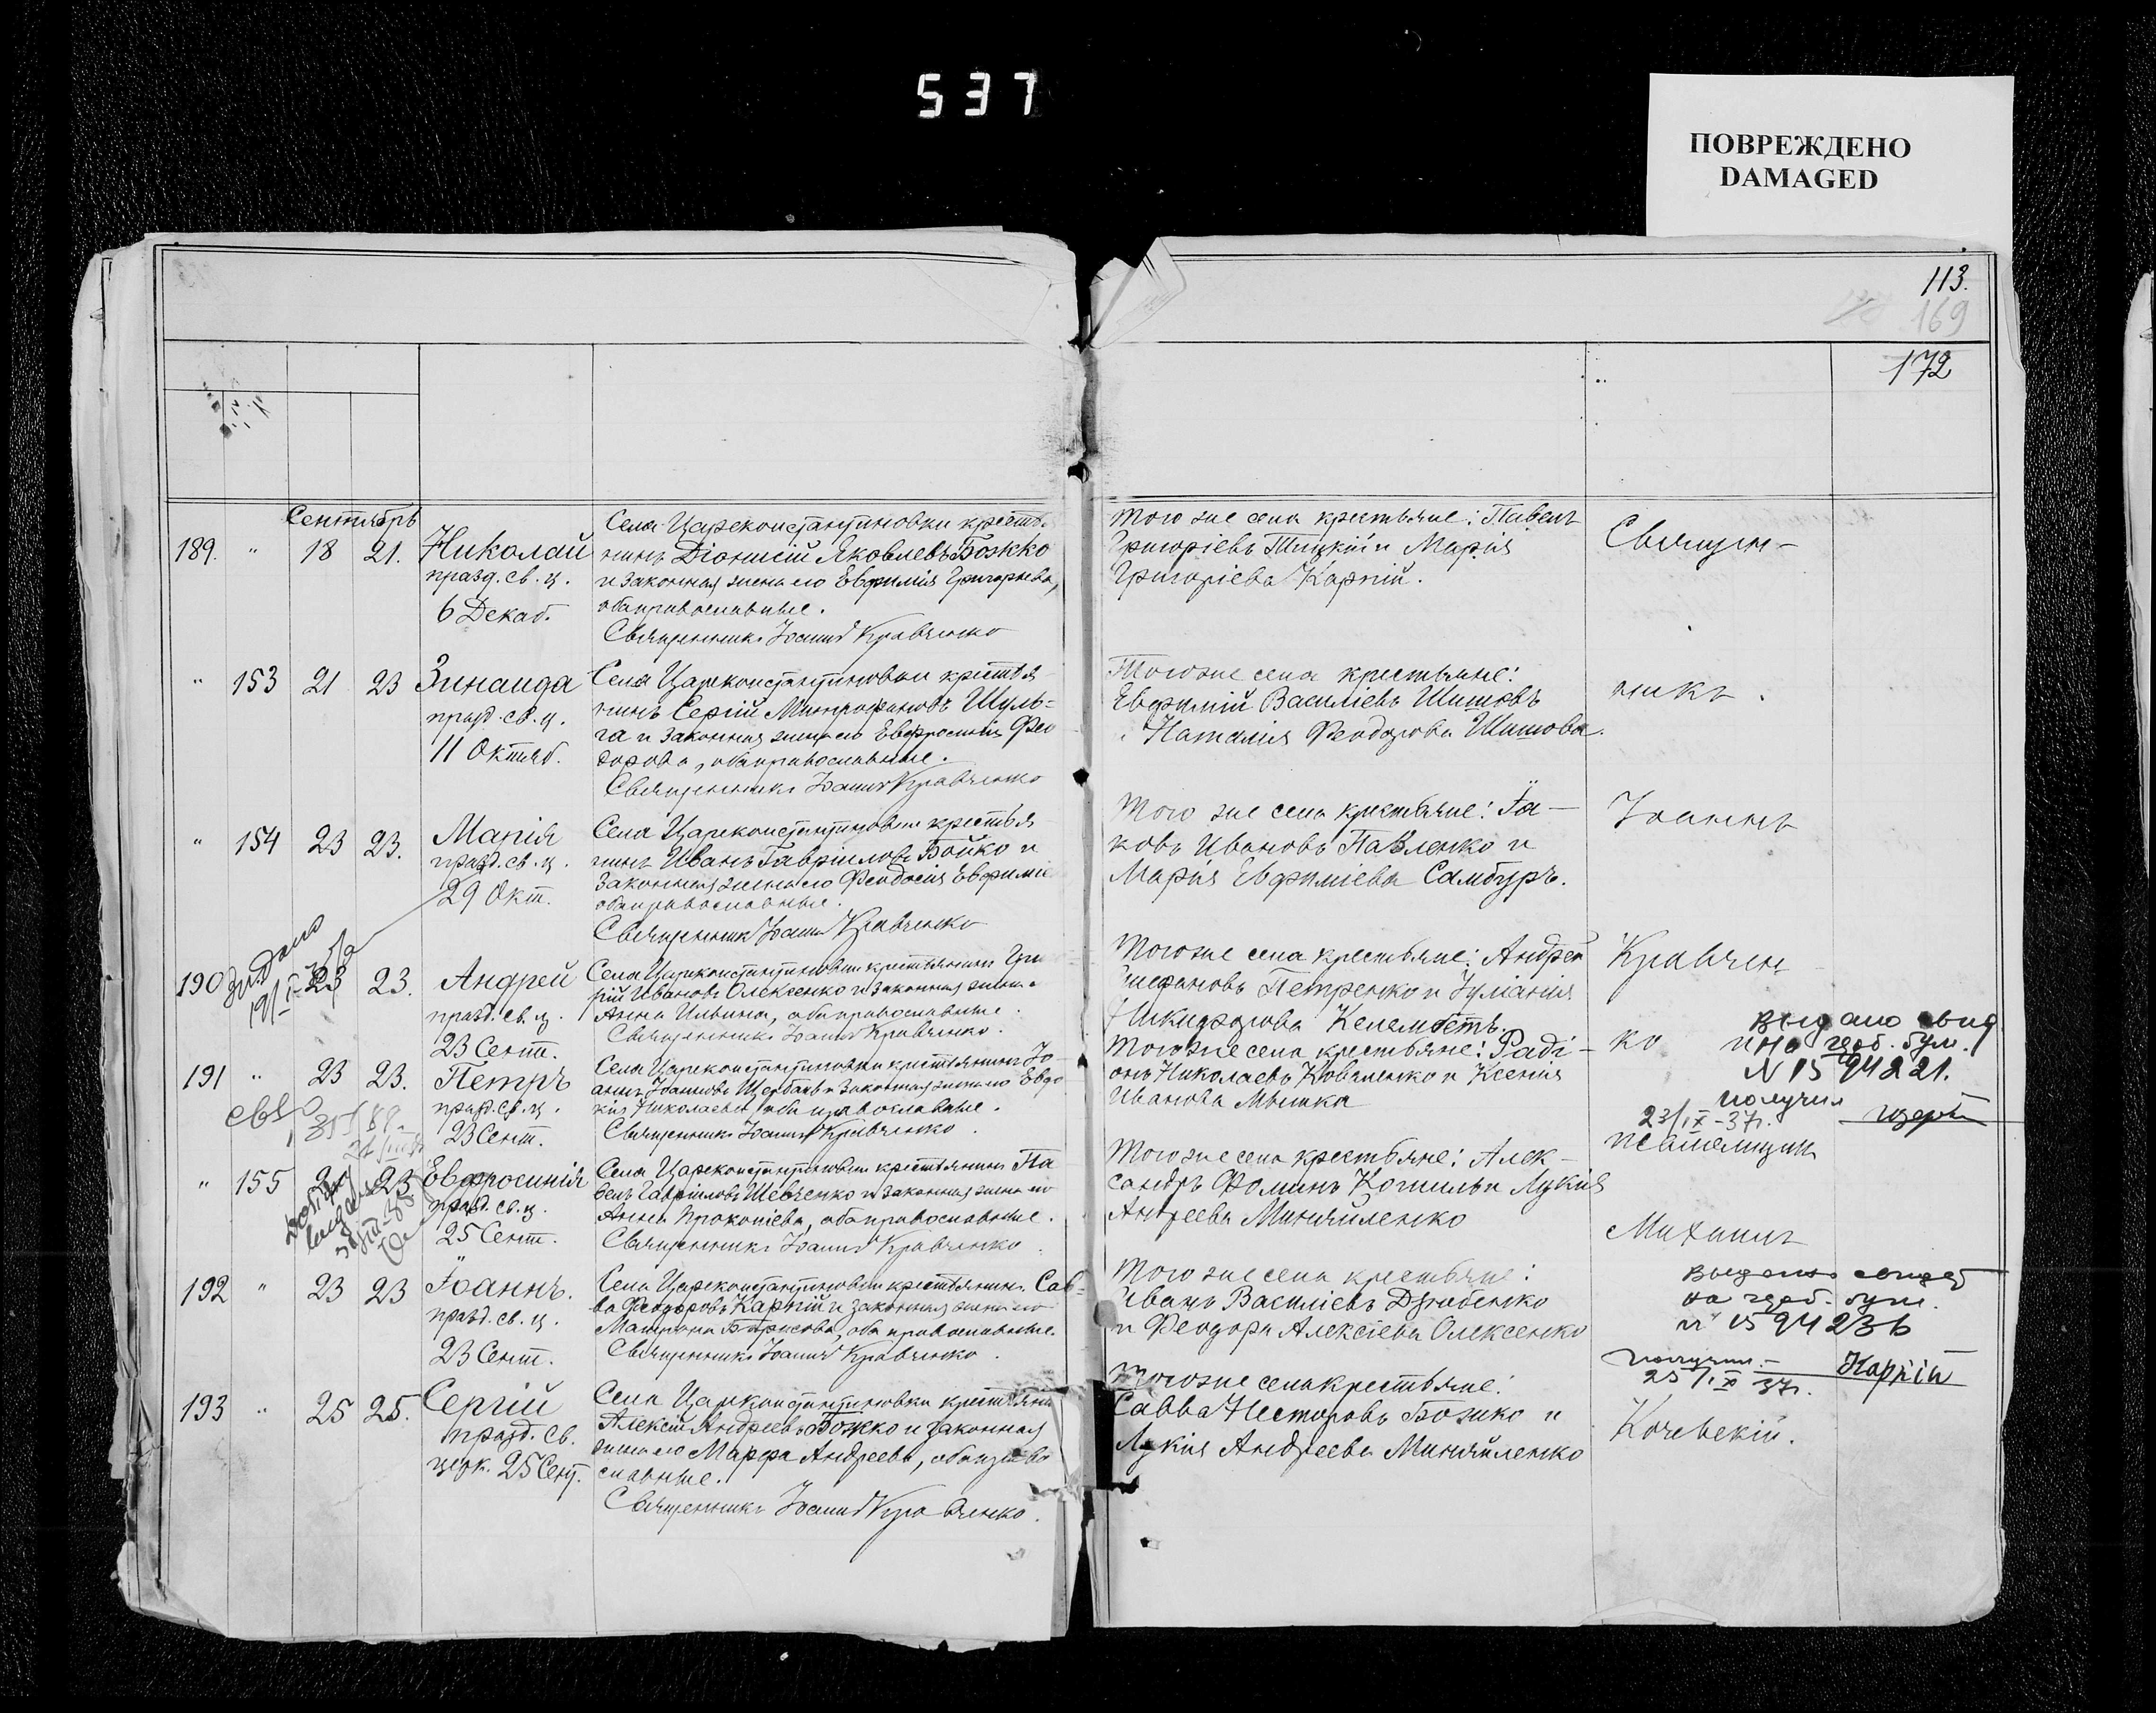 537
ПОВРЕЖДЕНО
DAMAGED
113.
169
172
Сентябрь
189. " 18 21. Николай
празд. св. ц.
6 Декаб.
Села Цареконстантиновки крестья
нинъ Діонисій Яковлевъ Божко
и законная жена его Евфимія Григорьева,
оба православные.
Священникъ Іоаннъ Кравченко
Того же села крестьяне: Павелъ
Григоріевъ и Марія
Григоріева Карпій.
Священ-
" 153 21 23 Зинаида
празд. св. ц.
11 Октяб.
Села Цареконстантиновки крестья
нинъ Сергій Митрофановъ Шуль=
га и законная жена его Евфросинія Фео
дорова, оба православные.
Священникъ Іоаннъ Кравченко
Того же села крестьяне:
Евфимій Василіевъ Шишовъ
и Наталія Феодорова Шишова.
никъ.
" 154 23 23. Марія
празд. св. ц.
29 Окт.
Села Цареконстантиновки крестья
нинъ Иванъ Гавріиловъ Бойко и
законная жена его Феодосія Евфиміе
оба православные.
Священникъ Іоаннъ Кравченко
Того же села крестьяне: Іа-
ковъ Ивановъ Павленко и
Марія Евфиміева Самбуръ.
Іоаннъ
190 23 23. Андрей
празд. св. ц.
23 Сент.
Села Цареконстантиновки крестьянинъ Гри
рій Ивановъ Олексенко и законная жена
Анна Ильина, оба православные.
Священникъ Іоаннъ Кравченко.
Того же села крестьяне: Андрей
Стефановъ Петренко и Іуліанія
Никифорова
Кравчен
191 " 23 23. Петръ
празд. св. ц.
23 Сент.
Села Цареконстантиновки крестьянинъ Іо
аннъ Іоанновъ Щербакъ и законная жена его Евдо
кія Николаева, оба православные.
Священникъ Іоаннъ Кравченко.
Того же села крестьяне: Радi-
онъ Николаевъ Коваленко и Ксенія
Иванова Мышка
ко
Выдано свид
на герб. бум.
N 1594221.
получил
23/IX-37г.
" 155 23 Евфросинія
празд. св. ц.
25 Сент.
Села Цареконстантиновки крестьянинъ Па
велъ Гавріиловъ Шевченко и законная жена его
Анна Прокопіева, оба православные.
Священникъ Іоаннъ Кравченко.
Того же села крестьяне: Алек-
сандръ Фоминъ и Лукія
Андреева Миняйленко
псаломщикъ
Михаилъ
192 " 23 23 Іоаннъ.
празд. св. ц.
23 Сент.
Села Цареконстантиновки крестьянинъ Сав=
ва Феодоровъ Карпій и законная жена его
Матрона Борисова, оба православные.
Священникъ Іоаннъ Кравченко.
Того же села крестьяне:
Иванъ Василіевъ Дзюбенко
и Феодора Алексіева Олексенко
Выдано свидет
на герб. бум.
N 1594236
получил.-
25/IX 37г.
Карпій
193 " 25 25. Сергій
празд. св.
церк. 25 Сент.
Села Цареконстантиновки крестьянин
Алексій Андреевъ Божко и законная
жена его Марфа Андреева, оба право
славные.
Священникъ Іоаннъ Кравченко.
Того же села крестьяне:
Савва Несторовъ Божко и
Лукія Андреева Миняйленко
Кочевскій.